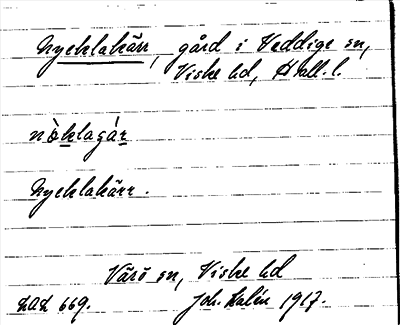 Nycklakärr, gård i Veddige sn,
Viske hd, Hall. l.
nòklagár
Nycklakärr.
Värö sn, Viske hd
669. Joh. Kalén 1917.